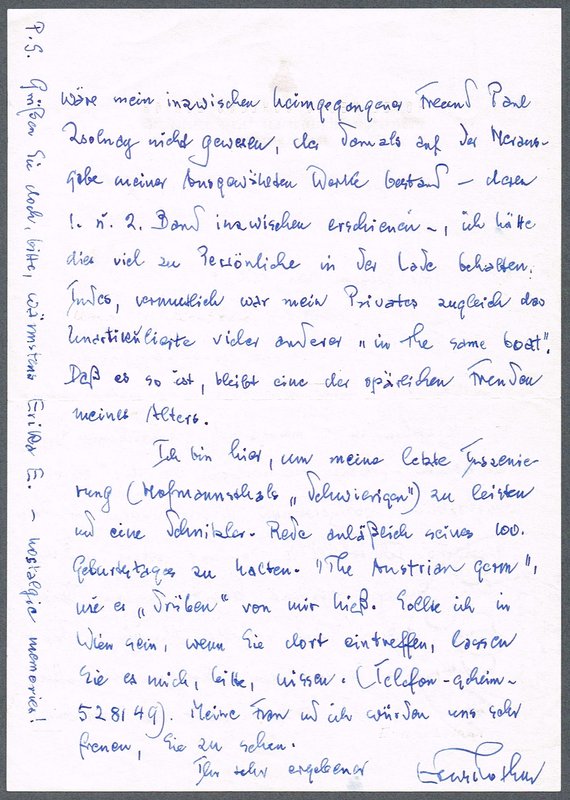 wäre mein inzwischen heimgegangener Freund Paul
Zsolnay nicht gewesen, der damals auf der Heraus-
gabe meiner Ausgewählten Werke bestand – deren
1. u. 2. Band inzwischen erschienen –, ich hätte
dies viel zu Persönliche in der Lade behalten.
Indes, vermutlich war mein Privates zugleich das
Unartikulierte vieler anderer „in the same boat".
Daß es so ist, bleibt eine der spärlichen Freuden
meines Alters.
Ich bin hier, um meine letzte Inszenie-
rung (Hofmannsthals „Schwierigen") zu leisten
und eine Schnitzler-Rede anläßlich seines 100.
Geburtstages zu halten. "The Austrian germ",
wie es „drüben" von mir hieß. Sollte ich in
Wien sein, wenn Sie dort eintreffen, lassen
Sie es mich, bitte, wissen. (Telefon-geheim-
528149). Meine Frau und ich würden uns sehr
freuen, Sie zu sehen.
Ihr sehr ergebener
P.S. Grüßen Sie doch, bitte, wärmstens Erika E. – nostalgic memories!